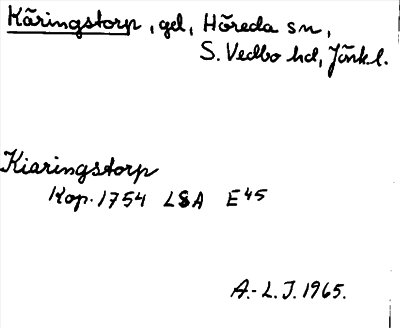 Käringstorp, gd, Höreda sn,
S. Vedbo hd, Jönk.l.
Kiaringstorp
Kop. 1754 LSA E45
A.-L.J. 1965.